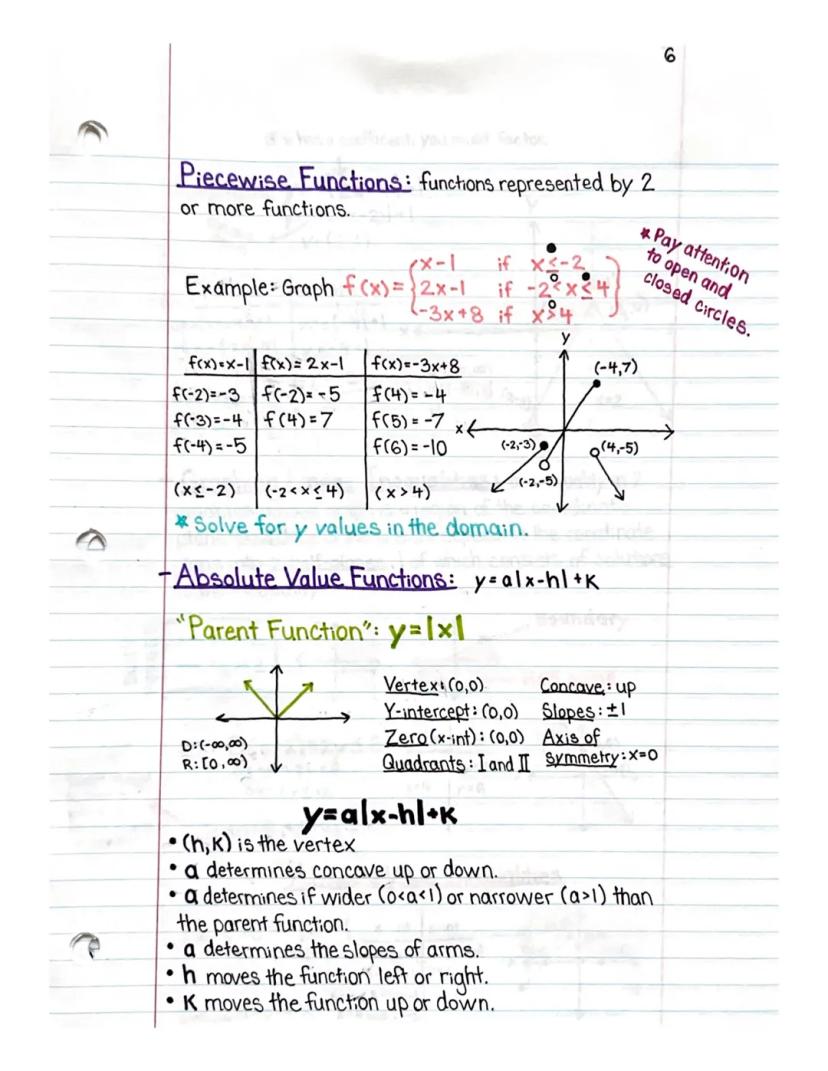 6
Piecewise Functions: functions represented by 2
or more functions.
* Pay attention
to open and
closed circles.
Example: Graph f(x) = { x-1 if x≤-2
2x-1 if -2<x≤4
-3x+8 if x>4 }
f(x)=x-1 f(x)=2x-1 f(x)=-3x+8
f(-2)=-3 f(-2)=-5 f(4)=-4
f(-3)=-4 f(4)=7 f(5)=-7
f(-4)=-5 f(6)=-10
(x≤-2) (-2<x≤4) (x>4)
y
(-4,7)
x
(-2,-3) (4,-5)
(-2,-5)
* Solve for y values in the domain.
- Absolute Value Functions: y=a|x-h|+K
"Parent Function": y=|x|
D:(-∞,∞)
R:[0,∞)
Vertex:(0,0) Concave: up
Y-intercept:(0,0) Slopes: ±1
Zero(x-int):(0,0) Axis of
Quadrants: I and II Symmetry: x=0
y=a|x-h|+K
• (h,K) is the vertex
• a determines concave up or down.
• a determines if wider (0<a<1) or narrower (a>1) than
the parent function.
• a determines the slopes of arms.
• h moves the function left or right.
• K moves the function up or down.